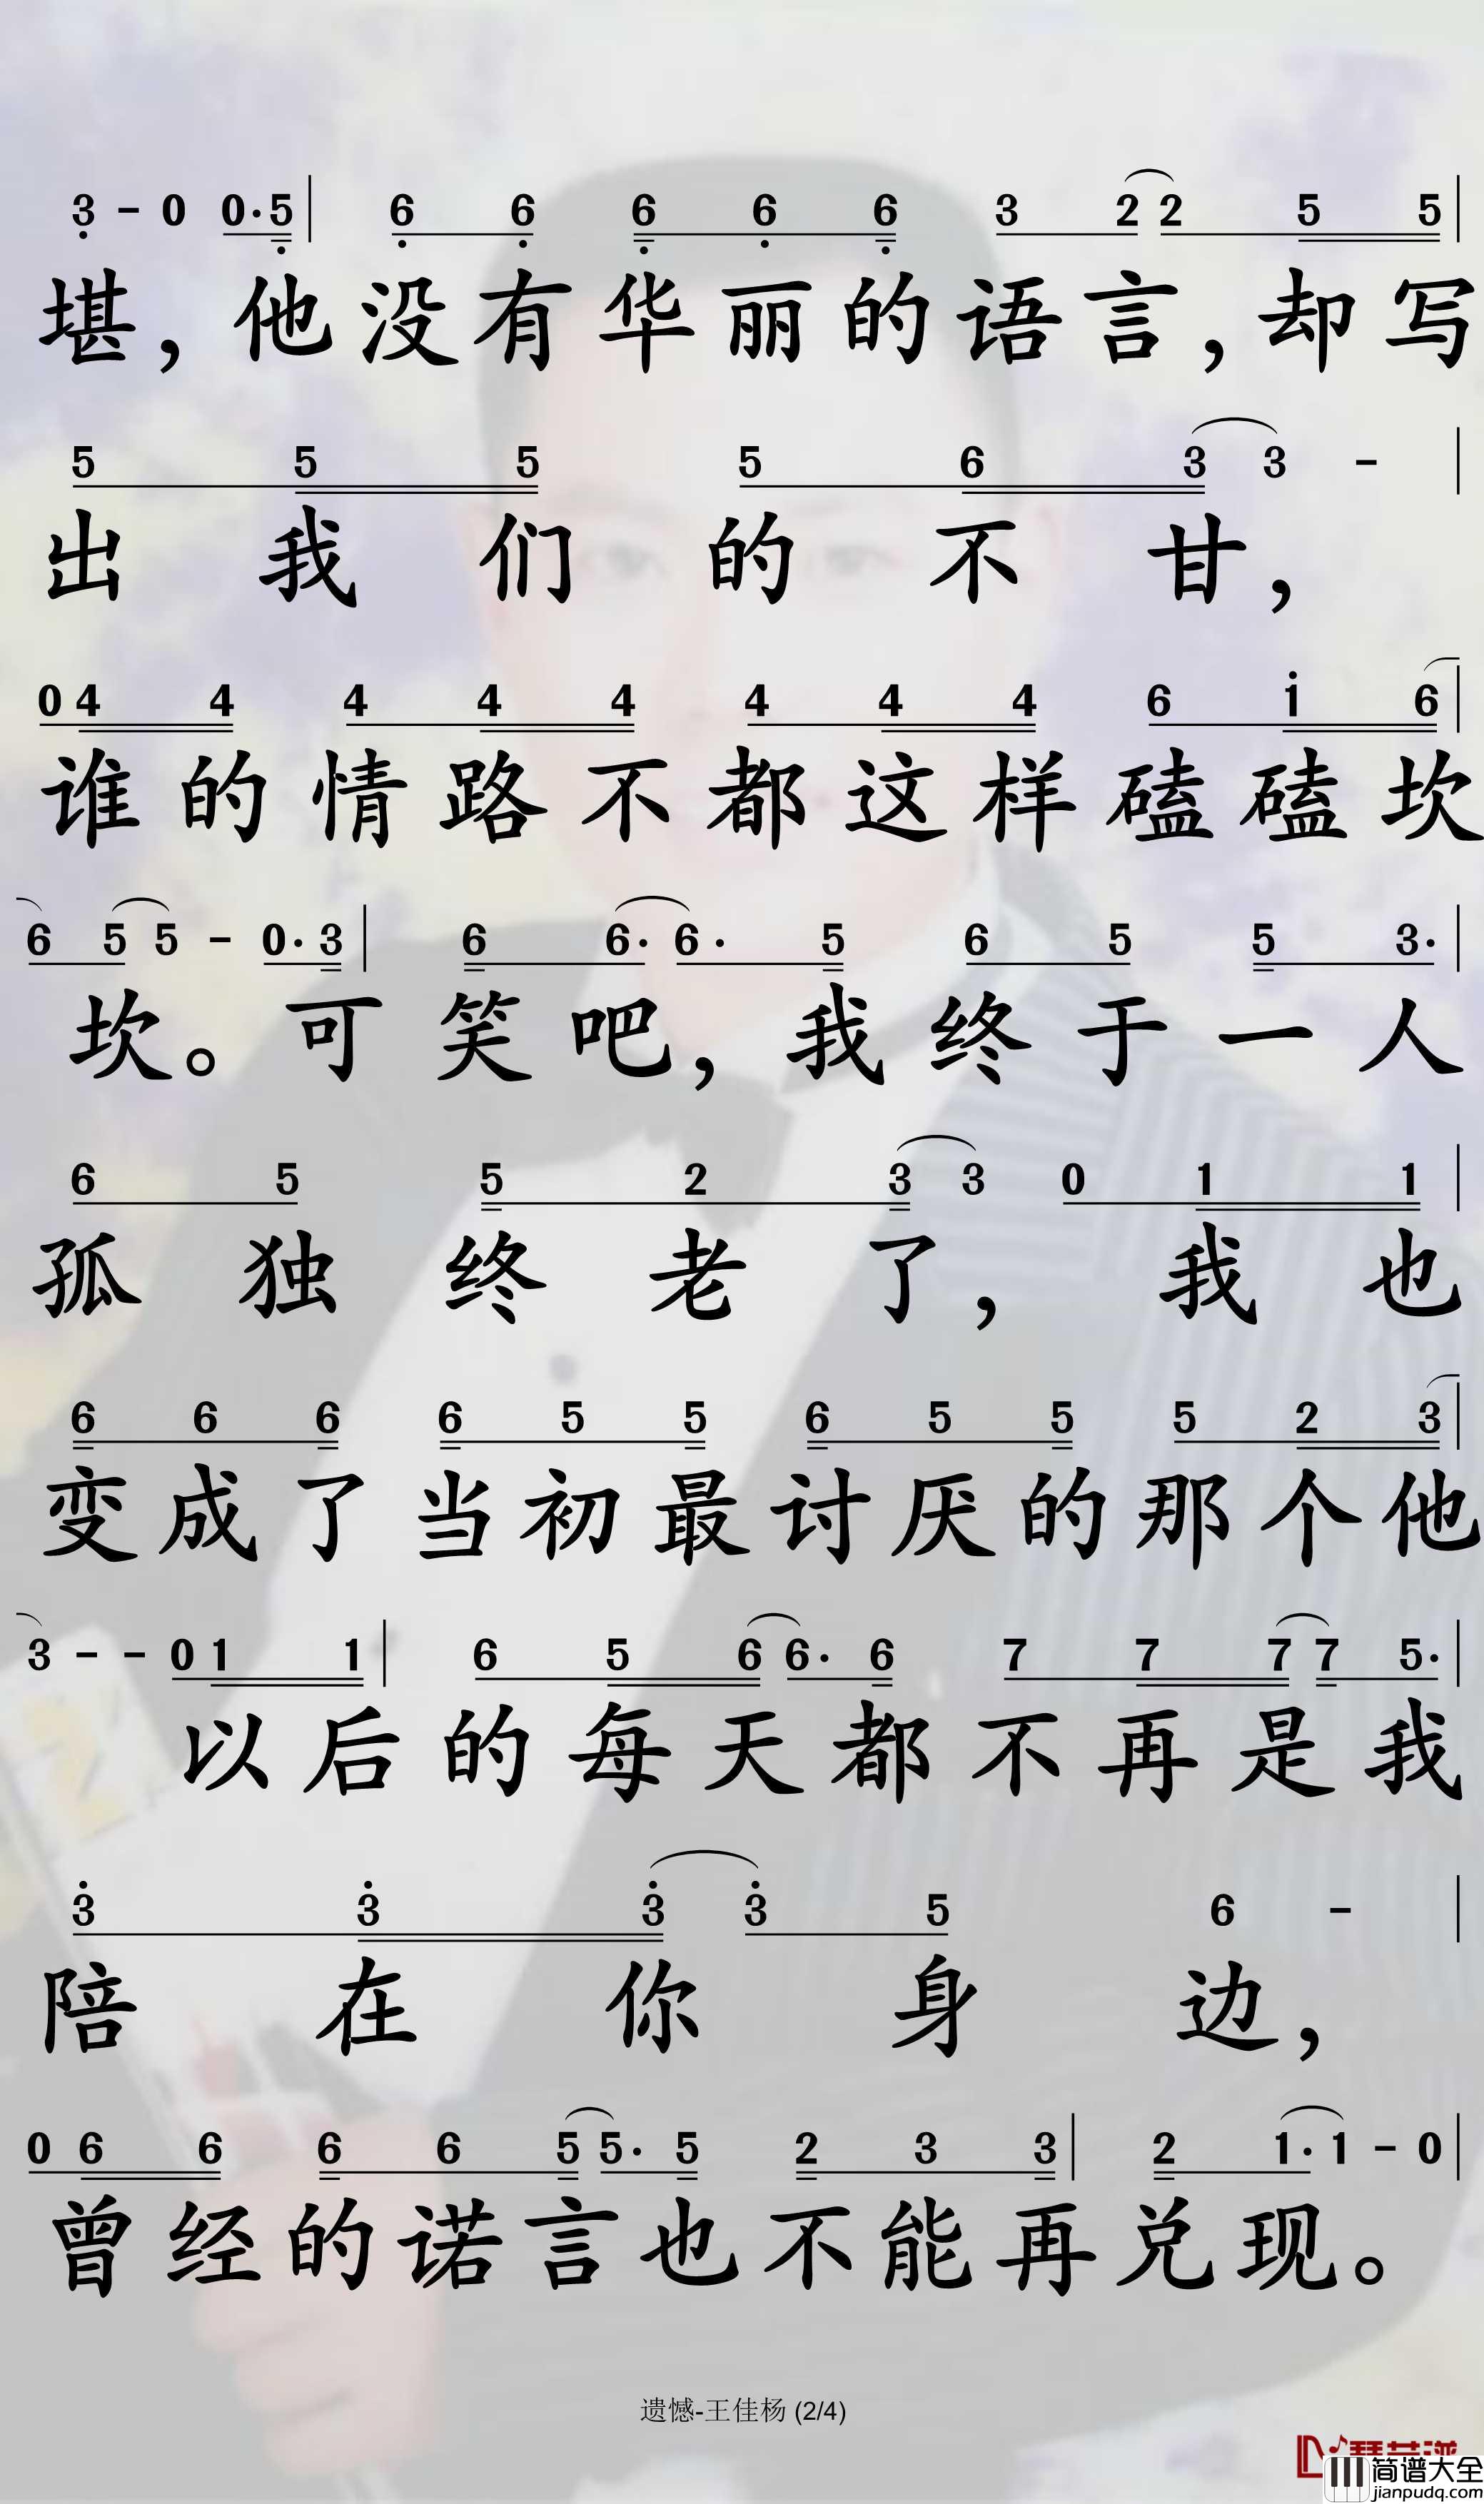 3 - 0 0. 5 | 6 6 6 6 6 3 2 2 5 5 |
堪，他没有华丽的语言，却写
5 5 5 5 6 3 3 - |
出我们的不甘，
0 4 4 4 4 4 4 4 4 6 1 6 |
谁的情路不都这样磕磕坎
6 5 5 - 0. 3 | 6 6. 6. 5 6 5 5 3. |
坎。可笑吧，我终于一人
6 5 5 2 3 3 0 1 1 |
孤独终老了，我也
6 6 6 6 5 5 6 5 5 5 2 3 |
变成了当初最讨厌的那个他
3 - - 0 1 1 | 6 5 6 6. 6 7 7 7 7 5. |
以后的每天都不再是我
3 3 3 3 5 6 - |
陪在你身边，
0 6 6 6 6 5 5. 5 2 3 3 | 2 1. 1 - 0 |
曾经的诺言也不能再兑现。
遗憾-王佳杨 (2/4)
简谱大全
jianpudq.com